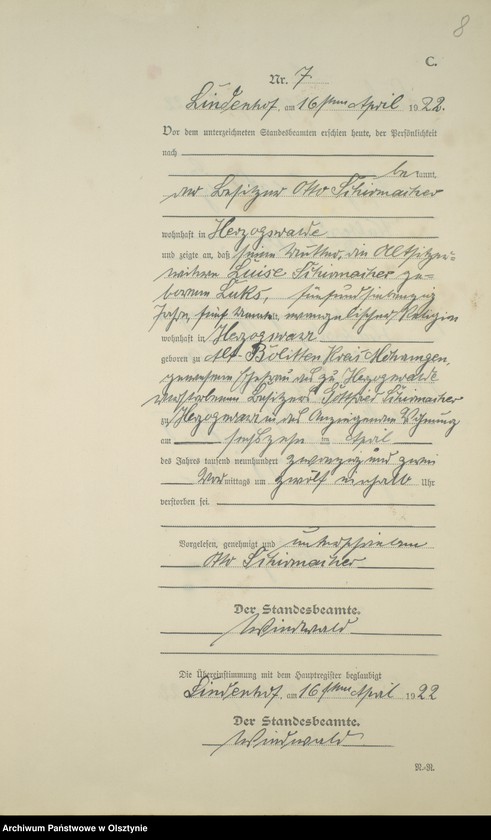 8
C.
Nr. 7
Lindenhof, am 16ten April 1922.
Vor dem unterzeichneten Standesbeamten erschien heute, der Persönlichkeit
nach
bekannt,
der Besitzer Otto Schirmacher
wohnhaft in Herzogswalde
und zeigte an, daß seine Mutter, die Altsitzer=
Luise Schirmacher ge=
borene Luks, fünfundsiebenzig
Jahre, fünf Monate alt, evangelischer Religion
wohnhaft in Herzogswalde
geboren zu Alt-Bolitten Kreis Mohrungen,
Ehefrau des zu Herzogswalde
verstorbenen Besitzers Gottfried Schirmacher
zu Herzogswalde in des Anzeigenden Wohnung
am sechszehn ten April
des Jahres tausend neunhundert zwanzig und zwei
Vormittags um zwölf einhalb Uhr
verstorben sei.
Vorgelesen, genehmigt und unterschrieben
Otto Schirmacher
Der Standesbeamte.
Windwald
Die Übereinstimmung mit dem Hauptregister beglaubigt
Lindenhof, am 16ten April 1922
Der Standesbeamte.
Windwald
Archiwum Państwowe w Olsztynie